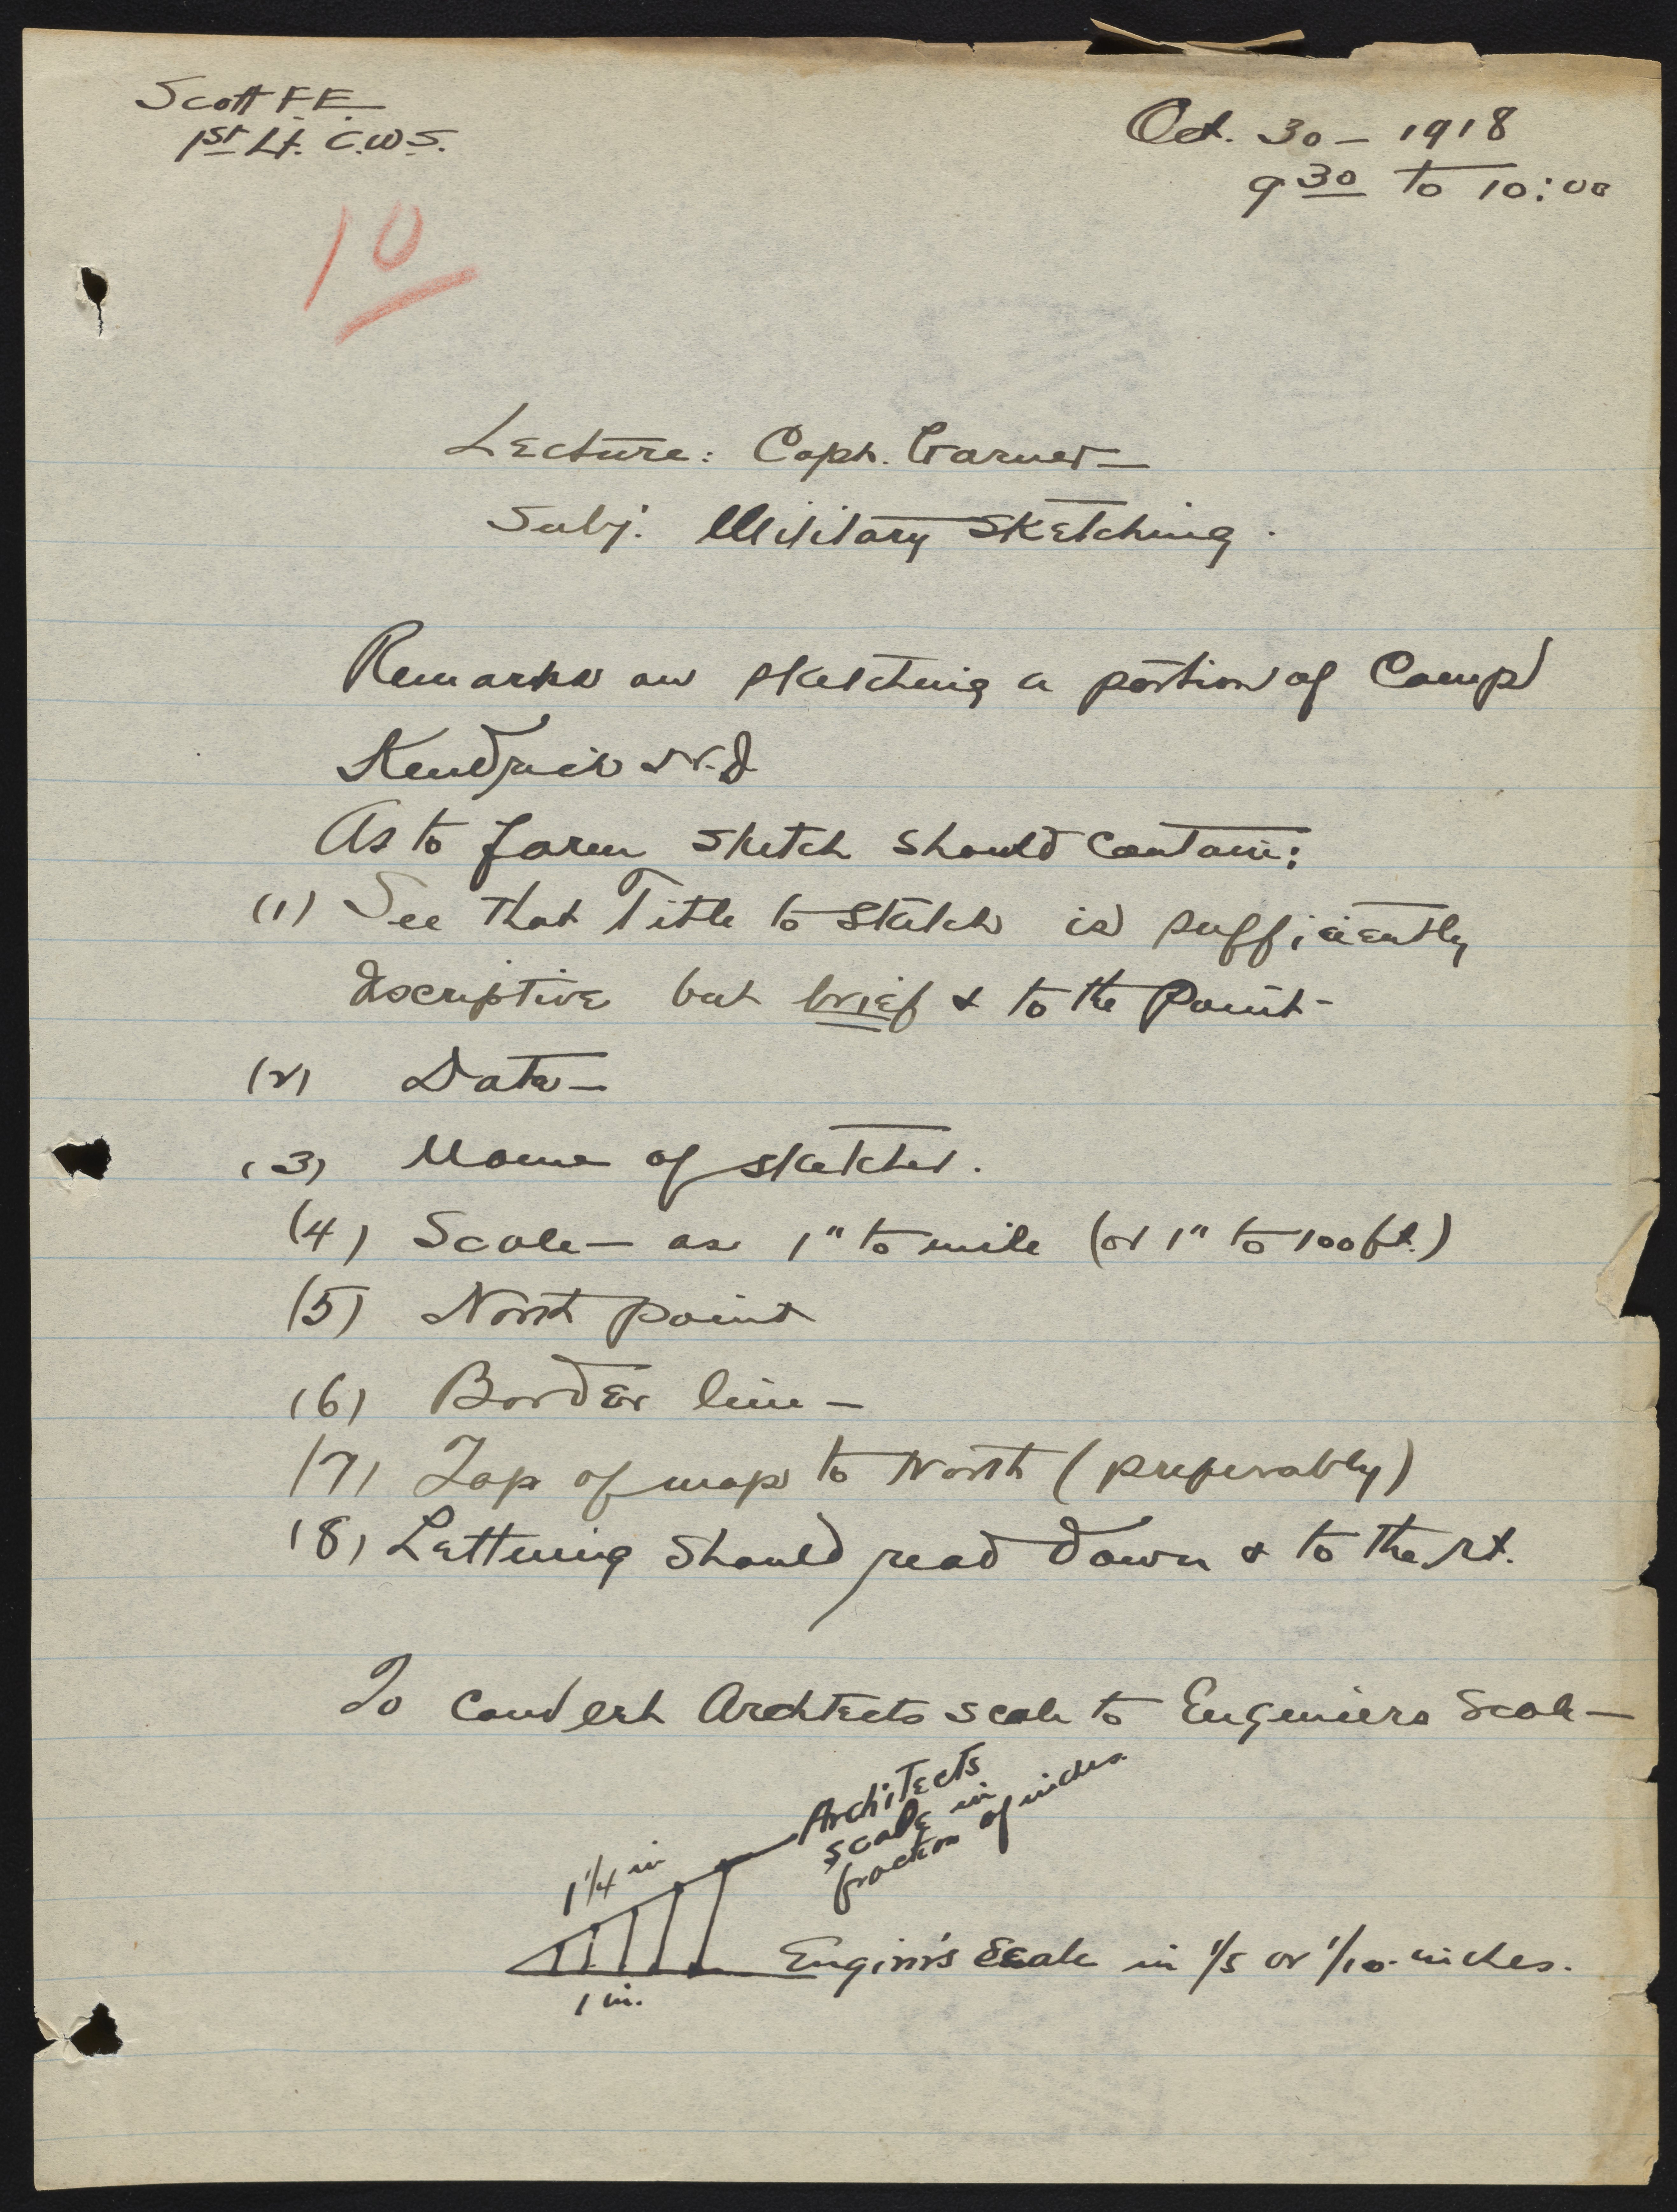 Scott F.E.
1st Lt. C.W.S.
Oct. 30 - 1918
9 30 to 10:00
10
Lecture: Capt. Garner -
Subj: Military Sketching.
Remarks on sketching a portion of Camp
Kendrick N.J.
As to form sketch should contain:
(1) See that Title to sketch is sufficiently
discriptive but brief & to the point -
(2) Date -
(3) Name of sketcher.
(4) Scale - as 1" to mile (or 1" to 100 ft.)
(5) North point
(6) Border line -
(7) Top of map to North (preferably)
(8) Lettering should read down & to the rt.
To convert Archtects scale to Engeniers Scale -
Architects
scale in
fraction of inches.
1 1/4 in
Engin'r's Scale in 1/5 or 1/10 inches.
1 in.